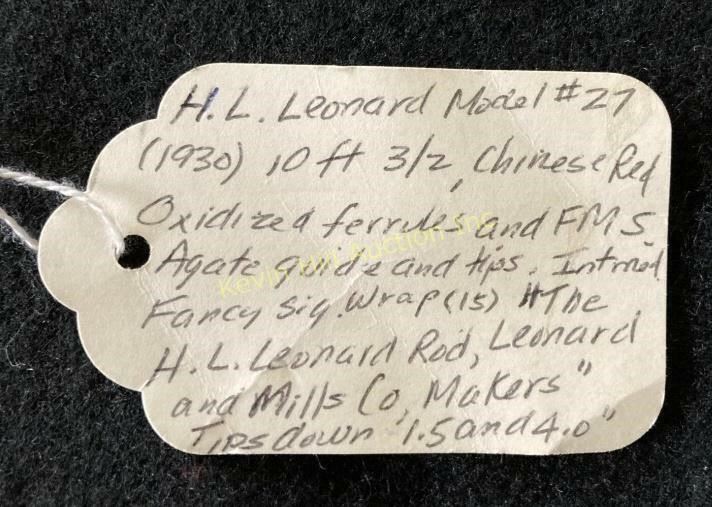 H.L. Leonard Model #27
(1930) 10 ft 3/2, Chinese Red
Oxidized ferrules and FMS.
Agate guide and tips. Intmed.
Fancy Sig. Wrap (15) "The
H.L. Leonard Rod, Leonard
and Mills Co, Makers"
Tips down 1.5 and 4.0"
Kevin Hill Auction Inc